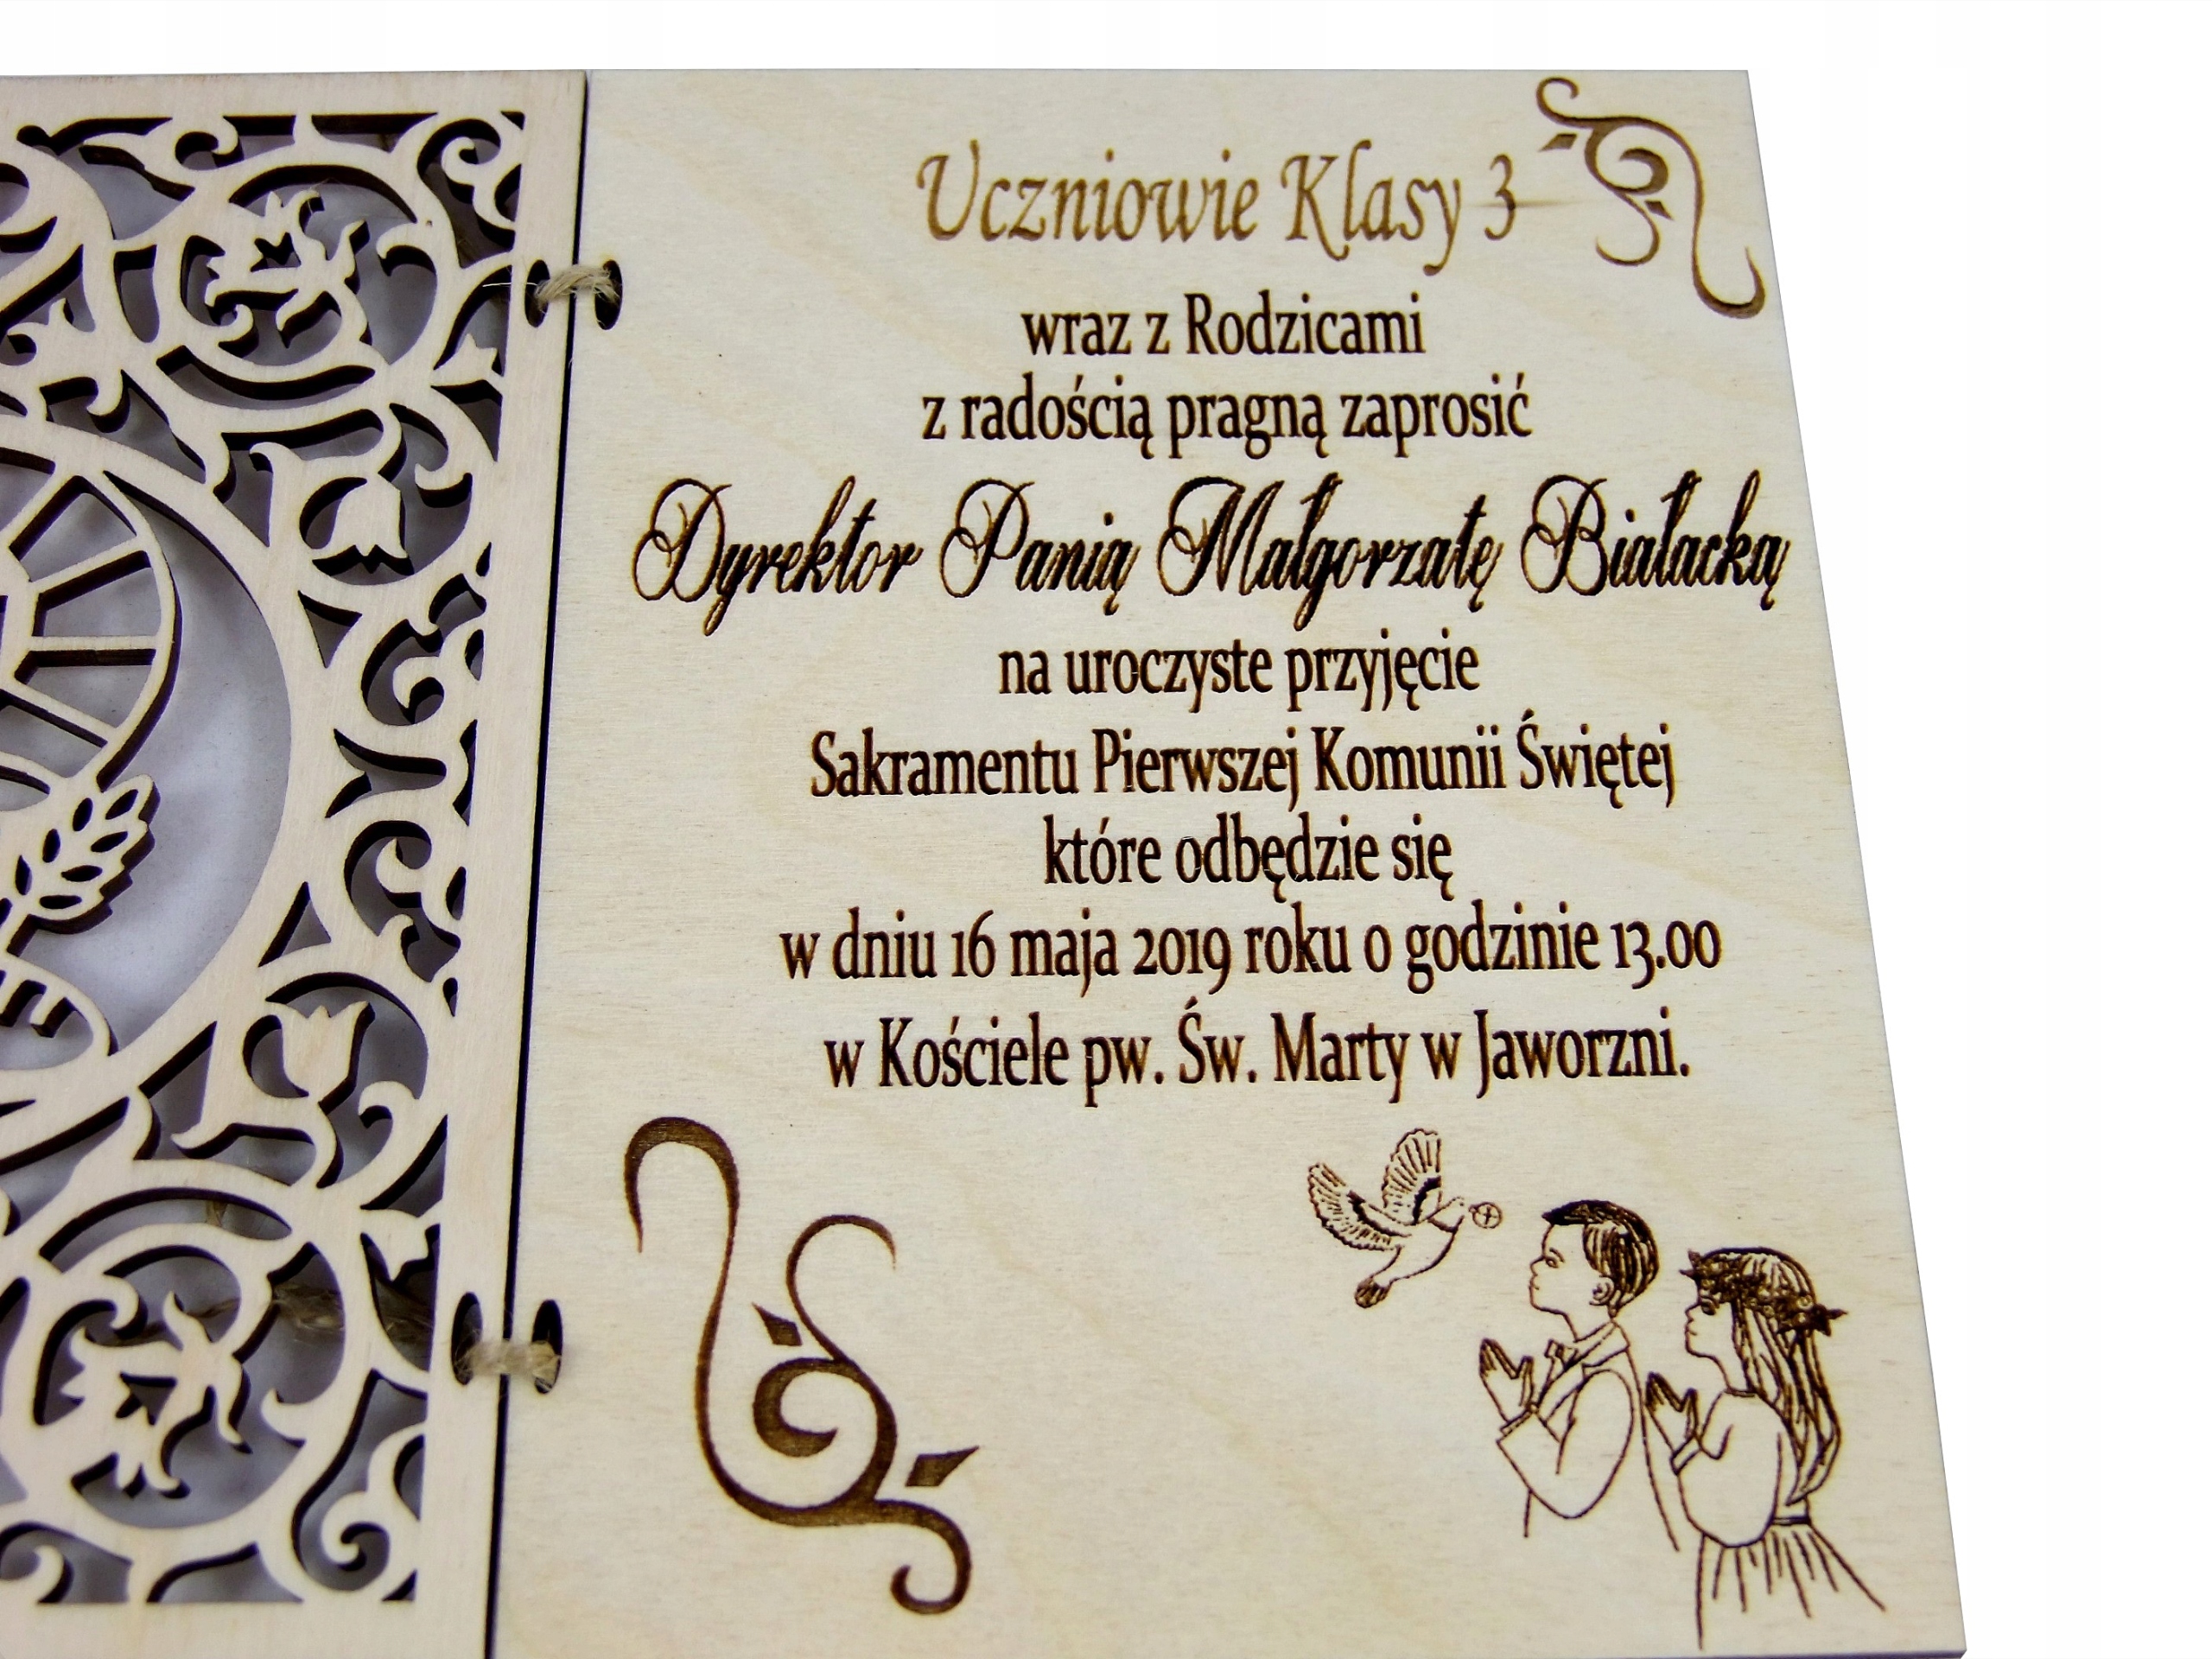 Uczniowie Klasy 3
wraz z Rodzicami
z radością pragną zaprosić
Dyrektor Panią Małgorzatę Białacką
na uroczyste przyjęcie
Sakramentu Pierwszej Komunii Świętej
które odbędzie się
w dniu 16 maja 2019 roku o godzinie 13.00
w Kościele pw. Św. Marty w Jaworzni.